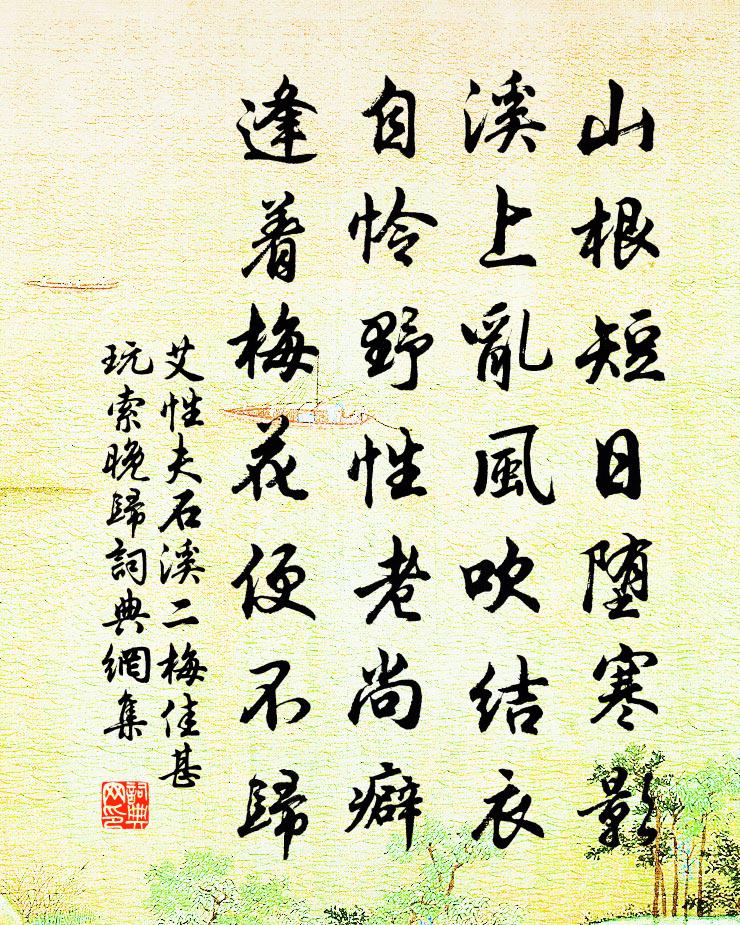 山根短日堕寒影
溪上亂風吹結衣
自怜野性老尚癖
逢着梅花便不歸
艾性夫石溪二梅佳甚
玩索晚歸詞典網集
詞典
网印